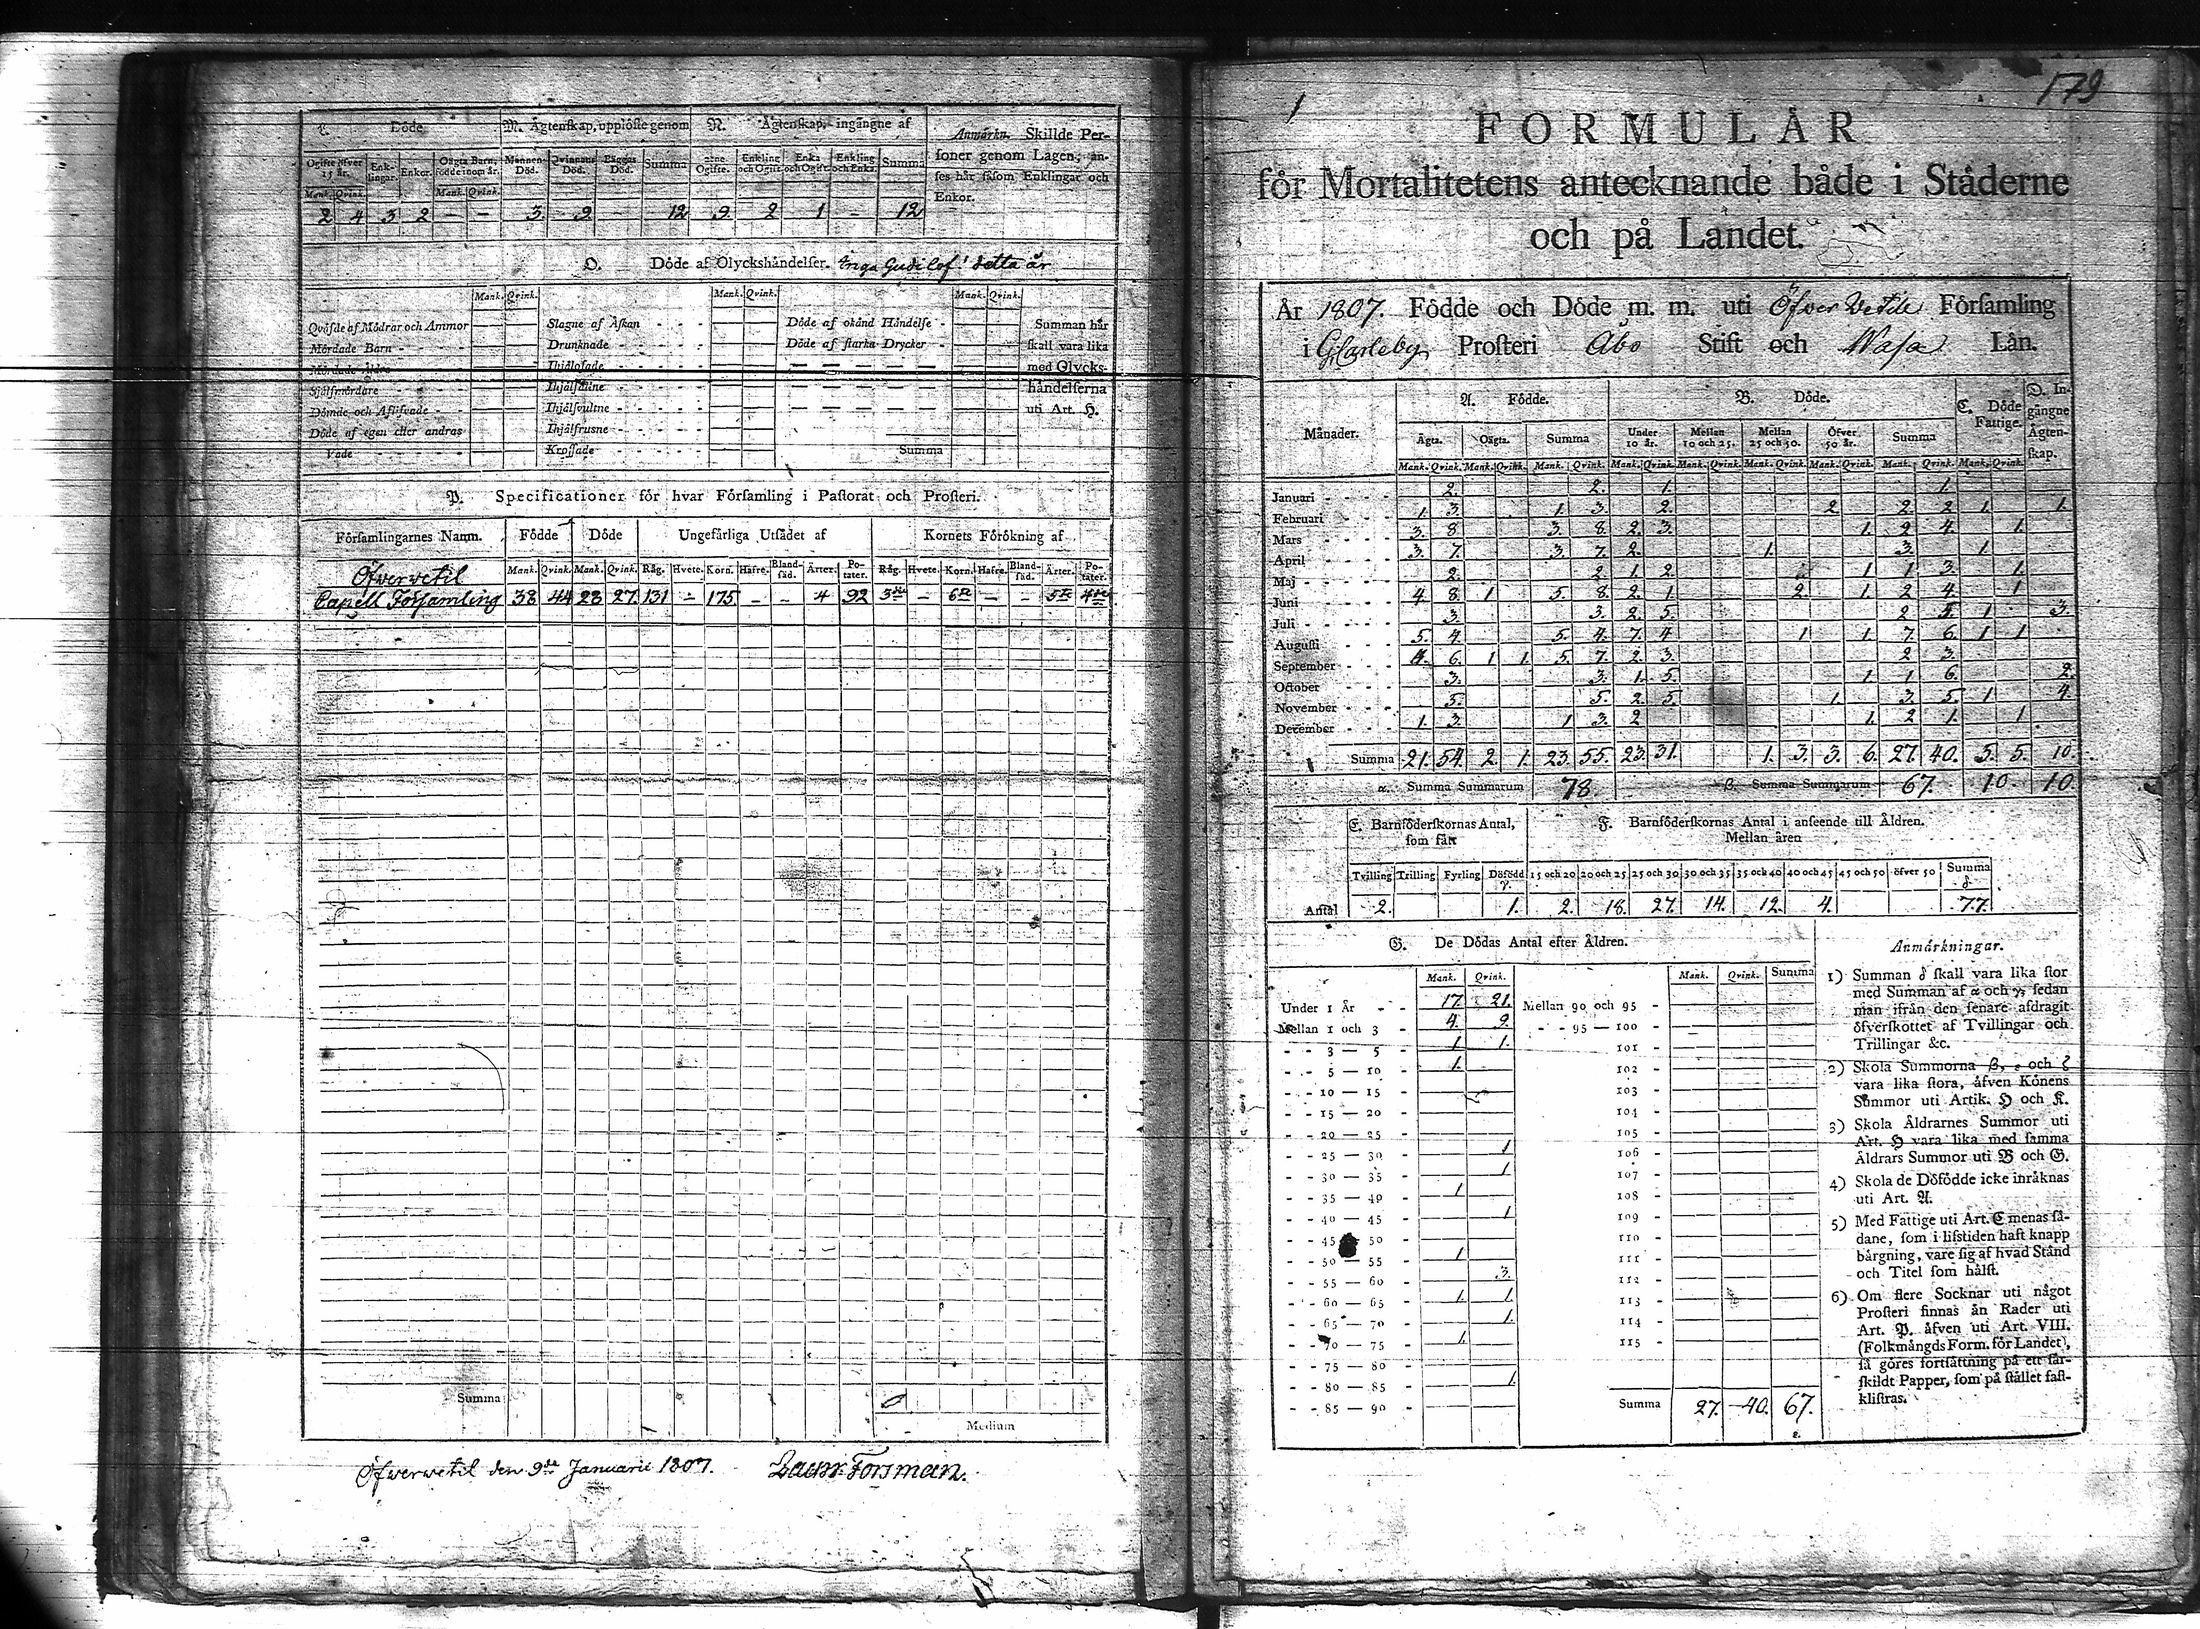 L. Döde
M. Ägtenskap, upplöste genom
N. Ägtenskap, ingångne af
Anmärkn. Skillde Personer genom Lagen, anses här såsom Enklingar och Enkor.
Ogifte öfver 15 år. Enklingar. Enkor. Oägta Barn, födde inom år. Mannens Död. Qvinnans Död. Bäggas Död. Summa Ogifte. Enkling och Ogift Enka och Ogift Enkling och Enka Summa
Mank. Qvink. Mank. Qvink.
2 4 3 2 - - 3. 9. 12 9. 2 1 - 12
O. Döde af Olyckshändelser. Inga Gudi lof! detta år
Mank. Qvink. Mank. Qvink. Mank. Qvink.
Qväfde af Mödrar och Ammor Slagne af Åskan Döde af okänd Händelse Summan här
Mördade Barn Drunknade Döde af starka Drycker skall vara lika
Mördade Äldre Ihjälosade med Olycks-
Sjelfmördare händelserna
Dömde och Aflifvade Ihjälsvultne uti Art. H.
Döde af egen eller andras Ihjälfrusne
Våde Krossade Summa
P. Specificationer för hvar Församling i Pastorat och Prosteri.
Församlingarnes Namn. Födde Döde Ungefärliga Utsädet af Kornets Förökning af
Mank. Qvink. Mank. Qvink. Råg. Hvete. Korn. Hafre. Blandsäd. Ärter. Potäter. Råg. Hvete. Korn. Hafre. Blandsäd. Ärter. Potäter.
Öfverwetil
Capell Församling 38 44 28 27. 131 - 175. - - 4 92 3 - 6 - - 5 4
Summa
Medium
Öfwerwetil den 9de Januarii 1807. Laur: Forsman.
1
179
FORMULÄR
för Mortalitetens antecknande både i Städerne
och på Landet.
År 1807. Födde och Döde m. m. uti Öfver Vetil Församling
i GCarleby Prosteri Åbo Stift och Wasa Län.
Månader. A. Födde. B. Döde. C. Döde Fattige. D. Ingångne Ägtenskap.
Ägta. Oägta. Summa Under 10 år. Mellan 10 och 25. Mellan 25 och 50. Öfver 50 år. Summa
Mank. Qvink. Mank. Qvink. Mank. Qvink. Mank. Qvink. Mank. Qvink. Mank. Qvink. Mank. Qvink. Mank. Qvink. Mank. Qvink.
Januari 2. 2. 1. 1.
Februari 1. 3. 1. 3. 2. 2 2 2 1. 1.
Mars 3. 8 3. 8. 2. 3. 1. 2 4. 1.
April 3. 7. 3. 7. 2. 1. 3. 1.
Maj 2. 2 1. 2. 1 1 3. 1.
Juni 4 8 1 5. 8. 2. 1 2. 1. 2 4. 1
Juli 3. 3. 2. 5. 2 5 1 3.
Augusti 5. 4. 5. 4. 7. 4 1 1. 7. 6. 1 1
September 4. 6. 1 1. 5. 7. 2. 3. 2 3.
October 3. 3. 1. 5. 1 1 6. 2.
November 5. 5. 2. 5. 1. 3. 5. 1 4.
December 1. 3. 1 3. 2 1. 2 1. 1
Summa 21. 54. 2. 1. 23. 55. 23. 31. 1. 3. 3. 6. 27. 40. 5. 5. 10.
α. Summa Summarum 78. β. Summa Summarum 67. 10 10.
E. Barnföderskornas Antal, som fått F. Barnföderskornas Antal i anseende till Åldren.
Mellan åren
Tvilling Trilling Fyrling Dödfödd γ. 15 och 20 20 och 25 25 och 30 30 och 35 35 och 40 40 och 45 45 och 50 öfver 50 Summa δ.
Antal 2. 1. 2. 18. 27. 14. 12. 4. 77.
G. De Dödas Antal efter Åldren.
Mank. Qvink. Mank. Qvink. Summa
Under 1 År 17. 21. Mellan 90 och 95
Mellan 1 och 3 4. 9. 95 — 100
3 — 5 1 1. 101
5 — 10 1. 102
10 — 15 103
15 — 20 104
20 — 25 105
25 — 30 1 106
30 — 35 1. 107
35 — 40 1 108
40 — 45 1 109
45 50 110
50 — 55 1 111
55 — 60 3. 112
60 — 65 1. 1. 113
65 — 70 1. 114
70 — 75 1. 115
75 — 80
80 — 85 1.
85 — 90 Summa 27. 40. 67.
Anmärkningar.
1) Summan δ skall vara lika stor
med Summan af α och γ, sedan
man ifrån den senare afdragit
öfverskottet af Tvillingar och
Trillingar &c.
2) Skola Summorna β, ε och ζ
vara lika stora, äfven Könens
Summor uti Artik. H och K.
3) Skola Åldrarnes Summor uti
Art. H vara lika med samma
Åldrars Summor uti B och G.
4) Skola de Dödfödde icke inräknas
uti Art. A.
5) Med Fattige uti Art. C menas så-
dane, som i lifstiden haft knapp
bärgning, vare sig af hvad Stånd
och Titel som hälst.
6) Om flere Socknar uti något
Prosteri finnas än Rader uti
Art. P. äfven uti Art. VIII.
(Folkmängds Form. för Landet),
så göres fortsättning på ett sär-
skildt Papper, som på stället fast-
klistras.